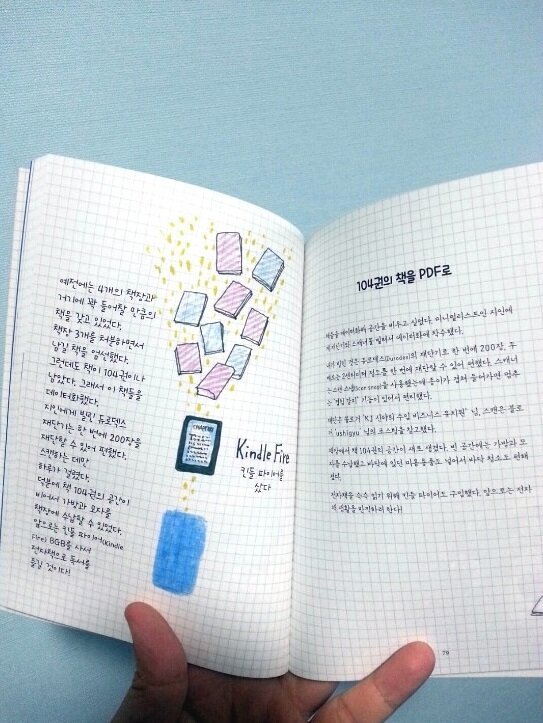 예전에는 4개의 책장과
거기에 꽉 들어찰 만큼의
책을 갖고 있었다.
책장 3개를 처분하면서
남길 책을 엄선했다.
그런데도 책이 104권이나
남았다. 그래서 이 책들을
데이터화했다.
지인에게 빌린 듀로덱스
재단기는 한 번에 200장을
재단할 수 있어 편했다.
스캔하는 데만
하루가 걸렸다.
덕분에 책 104권의 공간이
비어서 가방과 모자를
책장에 수납할 수 있었다.
앞으로는 킨들 파이어(Kindle
Fire) 8GB를 사서
전자책으로 독서를
즐길 것이다!
CHAPTER
Kindle Fire
킨들 파이어를
샀다
104권의 책을 PDF로
책들을 데이터화해 공간을 비우고 싶었다. 미니멀리스트인 지인에게
재단기와 스캐너를 빌려서 데이터화에 착수했다.
내가 빌린 것은 듀로덱스(Durodex)의 재단기로 한 번에 200장, 두
께로는 2센티미터 정도를 한 번에 재단할 수 있어 편했다. 스캐너
는 스캔스냅(Scan snap)을 사용했는데 종이가 겹쳐 들어가면 멈추
는 '겹침 감지' 기능이 있어서 편리했다.
재단은 블로그 'KJ 시야의 수입 비즈니스 유지원' 님, 스캔은 블로
거 'ushigyu' 님의 포스팅을 참고했다.
책장에서 책 104권의 공간이 새로 생겼다. 빈 공간에는 가방과 모
자를 수납했고 바닥에 있던 미용용품도 넣어서 바닥 청소도 편해
졌다.
전자책을 슥슥 읽기 위해 킨들 파이어도 구입했다. 앞으로는 전자
책 생활을 만끽하려 한다!
79